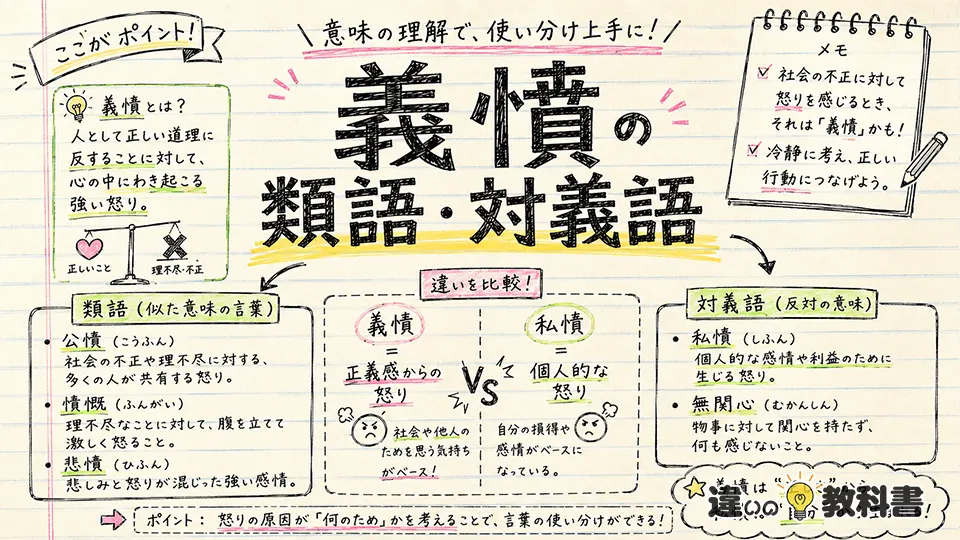 ここがポイント!
意味の理解で、使い分け上手に!
義憤の
類語・対義語
メモ
社会の不正に対して
怒りを感じるとき、
それは「義憤」かも!
冷静に考え、正しい
行動につなげよう。
義憤とは?
人として正しい道理に
反することに対して、
心の中にわき起こる
強い怒り。
正しいこと
理不尽・不正
類語(似た意味の言葉)
・公憤(こうふん)
社会の不正や理不尽に対する、
多くの人が共有する怒り。
・憤慨(ふんがい)
理不尽なことに対して、腹を立てて
激しく怒ること。
・悲憤(ひふん)
悲しみと怒りが混じった強い感情。
違いを比較!
義憤
=
正義感からの
怒り
社会や他人の
ためを思う気持ち
がベース!
VS
私憤
=
個人的な
怒り
自分の損得や
感情がベースに
なっている。
対義語(反対の意味)
・私憤(しふん)
個人的な感情や利益のために
生じる怒り。
・無関心(むかんしん)
物事に対して関心を持たず、
何も感じないこと。
ポイント:怒りの原因が「何のため」かを考えることで、言葉の使い分けができる!
違いの教科書